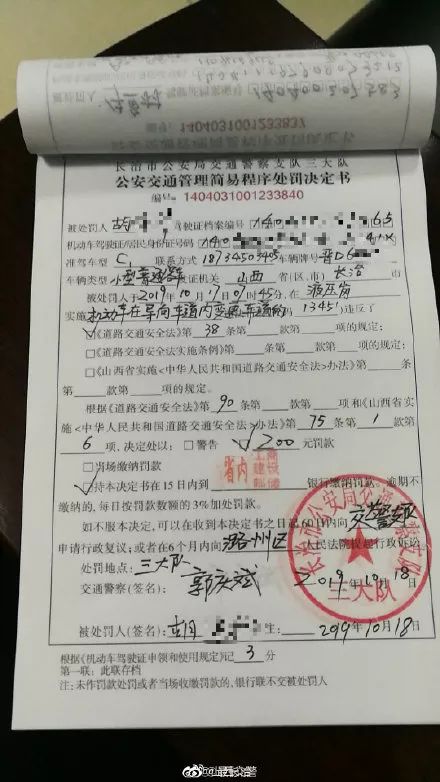 编号：1404031001233837
长治市公安局交通警察支队三大队
公安交通管理简易程序处罚决定书
编号：1404031001233840
被处罚人 胡 驾驶证档案编号 140 65
机动车驾驶证/居民身份证号码 140
准驾车型 C1 联系方式 18734503405 车辆牌号 晋D6
车辆类型 小型普通客车 发证机关 山西 省(区、市) 长治
被处罚人于2019年10月17日07时45分，在 液压岗
实施 机动车在导向车道内变更车道的 码 1345)违反了
☑《道路交通安全法》第 38 条第 款第 项的规定；
□《道路交通安全法实施条例》第 条第 款第 项的规定；
□《山西省实施<中华人民共和国道路交通安全法>办法》第 条
第 款第 项的规定。
根据《道路交通安全法》第 90 条第 款第 项和《山西省实
施<中华人民共和国道路交通安全法>办法》第 75 条第 1 款第
6 项，决定处以：□警告 ☑ 200 元罚款
□当场缴纳罚款
☑持本决定书在15日内到 省内 工商 建设 邮储 银行缴纳罚款。逾期不
缴纳的，每日按罚款数额的3%加处罚款。
如不服本决定，可以在收到本决定书之日起60日内向 交警支队
申请行政复议；或者在6个月内向 潞州区 人民法院提起行政诉讼
处罚地点：三大队
交通警察(签名)：郭庆斌 2019年10月18日
三大队
被处罚人(签名)：胡 2019年10月18日
根据《机动车驾驶证申领和使用规定》记 3 分
第一联：此联存档
注：未作罚款处罚或者当场收缴罚款的，银行联不交被处罚人